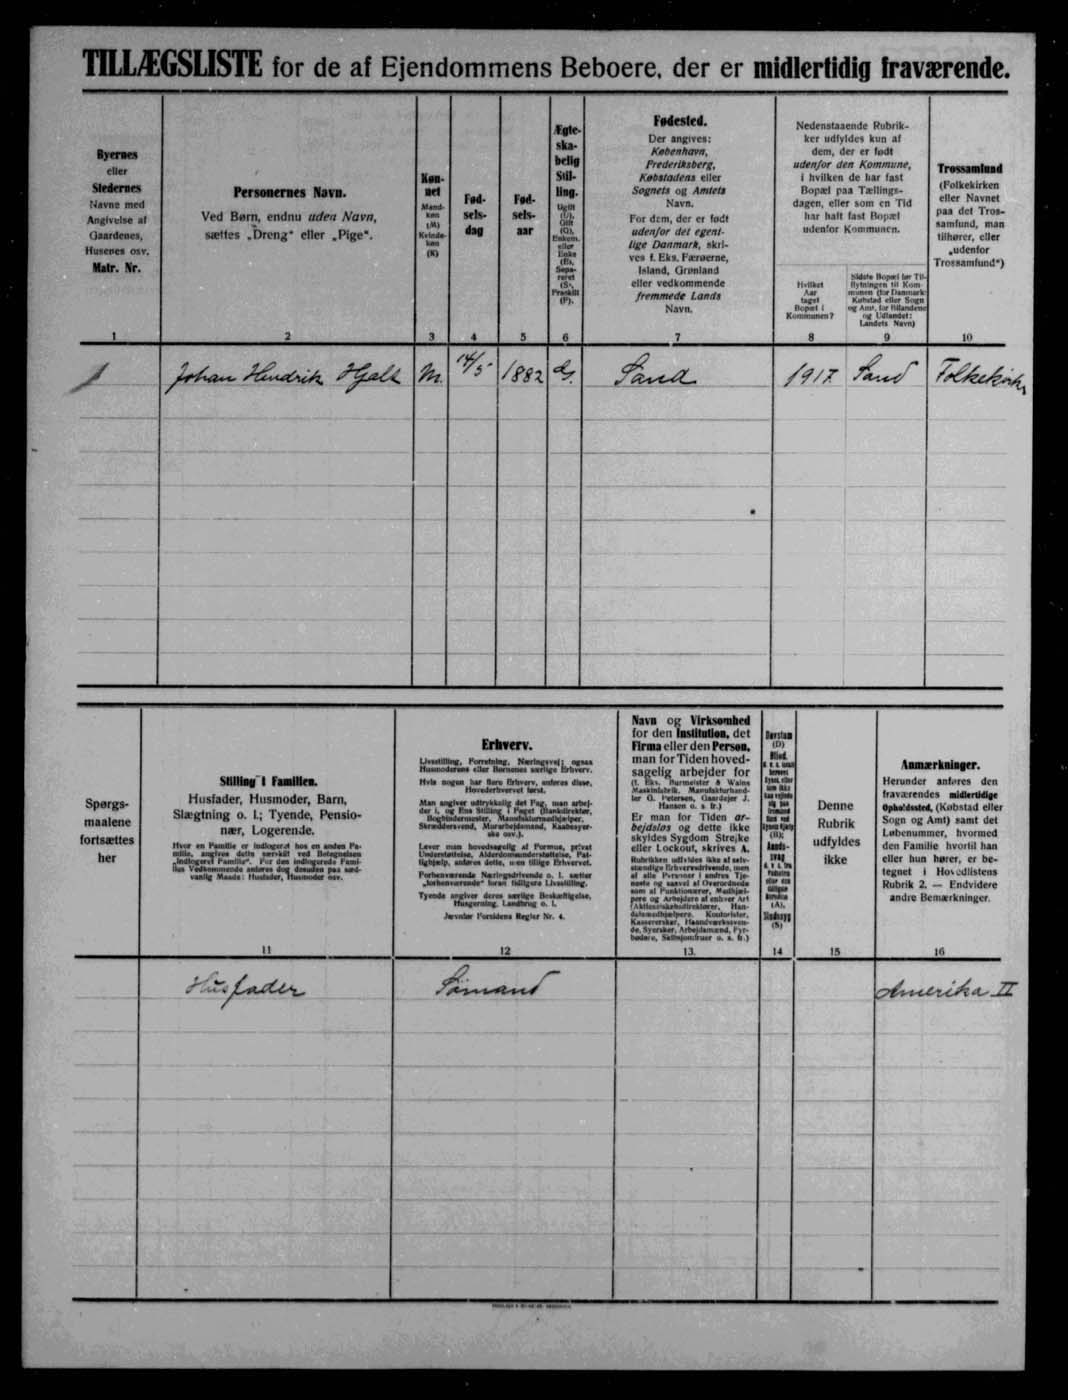 TILLÆGSLISTE for de af Ejendommens Beboere, der er midlertidig fraværende.
Byernes
eller
Stedernes
Navne med
Angivelse af
Gaardenes,
Husenes osv.
Matr. Nr.
1
Personernes Navn.
Ved Børn, endnu uden Navn,
sættes „Dreng“ eller „Pige“.
2
Køn-
net
Mand-
køn
(M)
Kvinde-
køn
(K)
3
Fød-
sels-
dag
4
Fød-
sels-
aar
5
Ægte-
ska-
belig
Stil-
ling.
Ugift
(U),
Gift
(G),
Enkem.
eller
Enke
(E),
Sepa-
reret
(S),
Fraskilt
(F).
6
Fødested.
Der angives:
København,
Frederiksberg,
Købstadens eller
Sognets og Amtets
Navn.
For dem, der er født
udenfor det egent-
lige Danmark, skri-
ves f. Eks. Færøerne,
Island, Grønland
eller vedkommende
fremmede Lands
Navn.
7
Nedenstaaende Rubrik-
ker udfyldes kun af
dem, der er født
udenfor den Kommune,
i hvilken de har fast
Bopæl paa Tællings-
dagen, eller som en Tid
har haft fast Bopæl
udenfor Kommunen.
Hvilket
Aar
taget
Bopæl i
Kommunen?
8
Sidste Bopæl før Til-
flytningen til Kom-
munen (for Danmark:
Købstad eller Sogn
og Amt, for Bilandene
og Udlandet:
Landets Navn)
9
Trossamfund
(Folkekirken
eller Navnet
paa det Tros-
samfund, man
tilhører, eller
„udenfor
Trossamfund“)
10
1 Johan Hendrik Hjalt M. 14/5 1882 G. Sand 1917 Sand Folkekirke
Spørgs-
maalene
fortsættes
her
Stilling i Familien.
Husfader, Husmoder, Barn,
Slægtning o. l.; Tyende, Pensio-
nær, Logerende.
Hvor en Familie er indlogeret hos en anden Fa-
milie, angives dette særskilt ved Betegnelsen
„Indlogeret Familie“. For den indlogerede Fami-
lies Vedkommende anføres dog desuden paa sæd-
vanlig Maade: Husfader, Husmoder osv.
11
Erhverv.
Livsstilling, Forretning, Næringsvej; ogsaa
Husmoderens eller Børnenes særlige Erhverv.
Hvis nogen har flere Erhverv, anføres disse,
Hovederhvervet først.
Man angiver udtrykkelig det Fag, man arbej-
der i, og Ens Stilling i Faget (Bankdirektør,
Bogbindermester, Manufakturmedhjælper,
Skræddersvend, Murarbejdsmand, Kaabesyer-
ske osv.).
Lever man hovedsagelig af Formue, privat
Understøttelse, Alderdomsunderstøttelse, Fat-
tighjælp, anføres dette, men tillige Erhvervet.
Forhenværende Næringsdrivende o. l. sætter
„forhenværende“ foran tidligere Livsstilling.
Tyende angiver deres særlige Beskæftigelse,
Husgerning, Landbrug o. l.
Jævnfør Forsidens Regler Nr. 4.
12
Navn og Virksomhed
for den Institution, det
Firma eller den Person,
man for Tiden hoved-
sagelig arbejder for
(f. Eks. Burmeister & Wains
Maskinfabrik, Manufakturhand-
ler G. Petersen, Gaardejer J.
Hansen o. s. fr.)
Er man for Tiden ar-
bejdsløs og dette ikke
skyldes Sygdom Strejke
eller Lockout, skrives A.
Rubrikken udfyldes ikke af selv-
stændige Erhvervsdrivende, men
af alle Personer i andres Tje-
neste og saavel af Overordnede
som af Funktionærer, Medhjæl-
pere og Arbejdere af enhver Art
(Aktieselskabsdirektører, Han-
delsmedhjælpere, Kontorister,
Kassererske, Haandværkssven-
de, Syersker, Arbejdsmænd, Fyr-
bødere, Skibsjomfruer o. s. fr.)
13.
Døvstum
(D)
Blind,
(B);
Aands-
svag
(A),
Sindssyg
(S)
14
Denne
Rubrik
udfyldes
ikke
15
Anmærkninger.
Herunder anføres den
fraværendes midlertidige
Opholdssted, (Købstad eller
Sogn og Amt) samt det
Løbenummer, hvormed
den Familie hvortil han
eller hun hører, er be-
tegnet i Hovedlistens
Rubrik 2. — Endvidere
andre Bemærkninger.
16
Husfader Sømand Amerika II